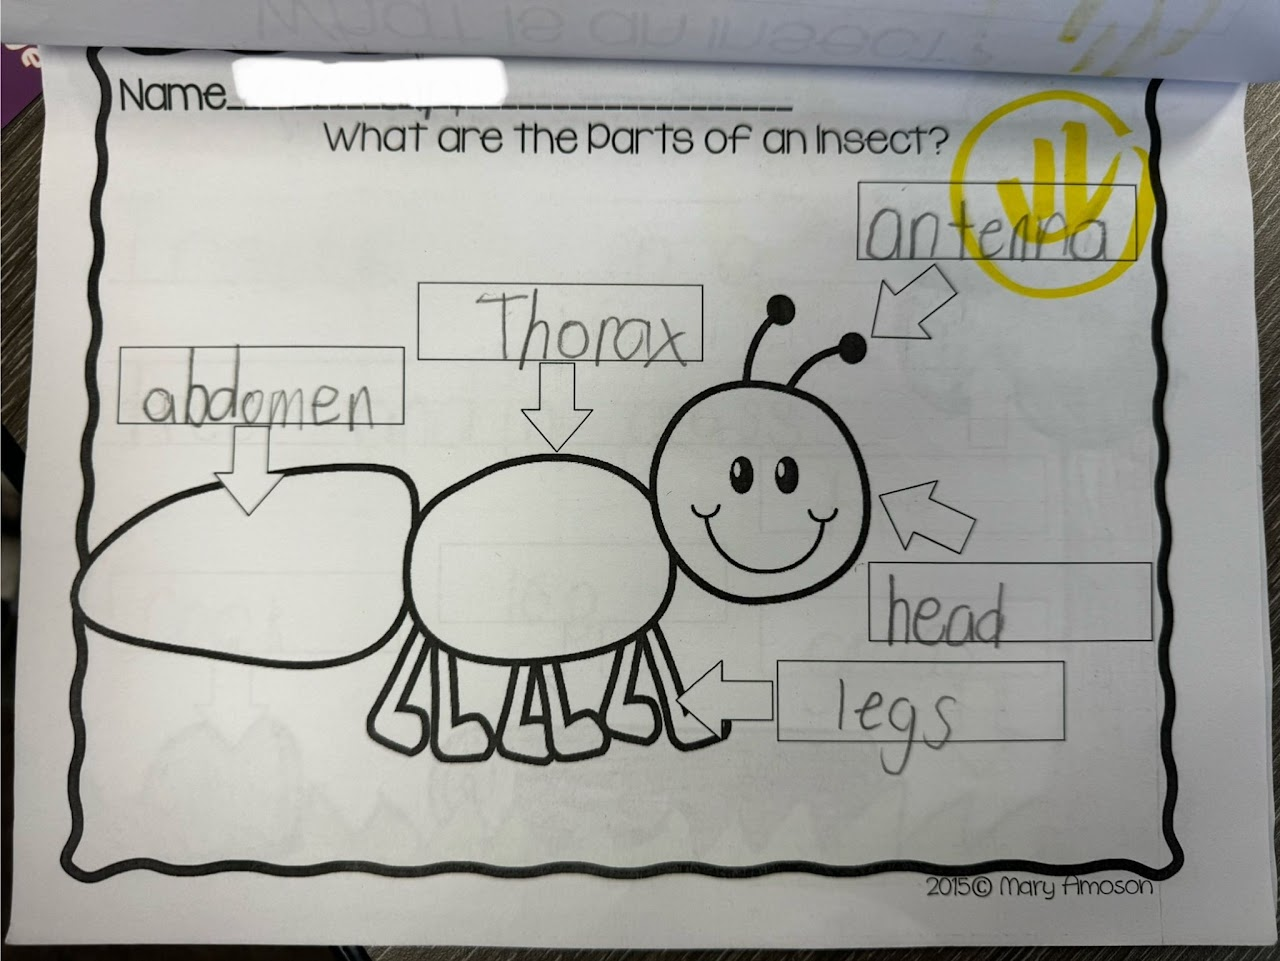 Name
What are the Parts of an Insect?
antenna
Thorax
abdomen
head
legs
2015© Mary Amoson